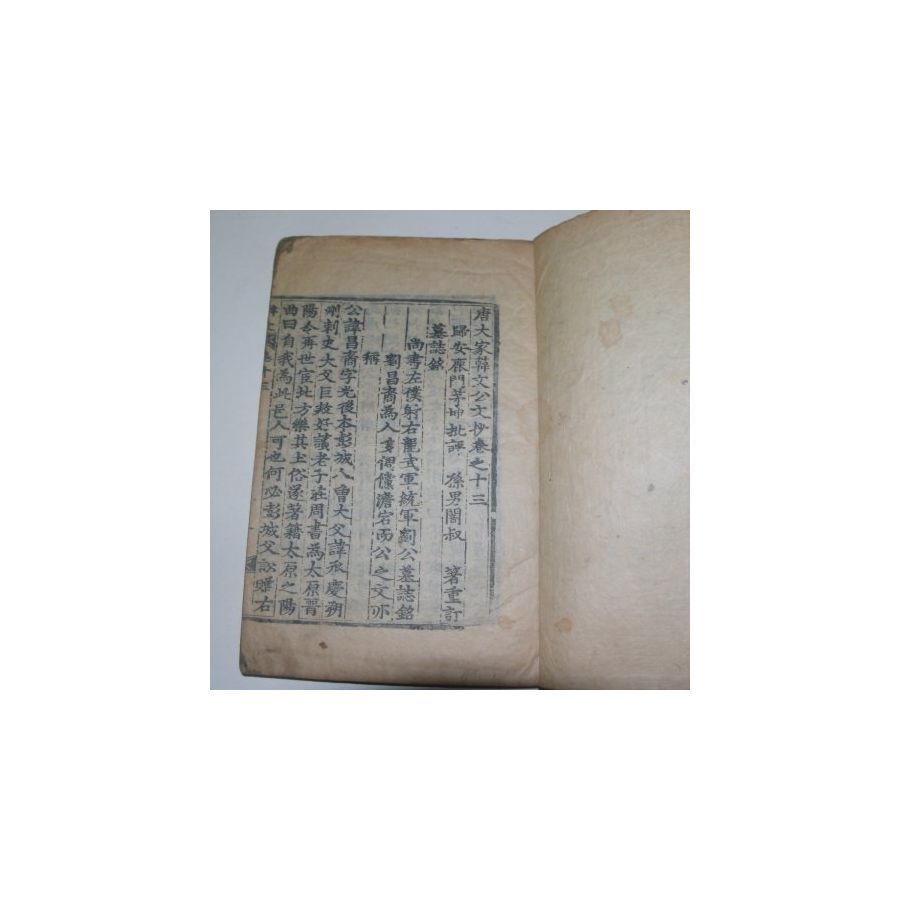 唐大家韓文公文抄卷之十三
歸安鹿門茅坤批評 孫男闇叔 著重訂
墓誌銘
尚書左僕射右龍武軍統軍劉公墓誌銘
劉昌裔為人多倜儻澹宕而公之文亦
稱
公諱昌裔字光後本彭城人曾大父諱承慶朔
州刺史大父巨敖好讀老子莊周書為太原晉
陽令再世宦北方樂其土俗遂著籍太原之陽
曲曰自我為此邑人可也何必彭城父訟贈右